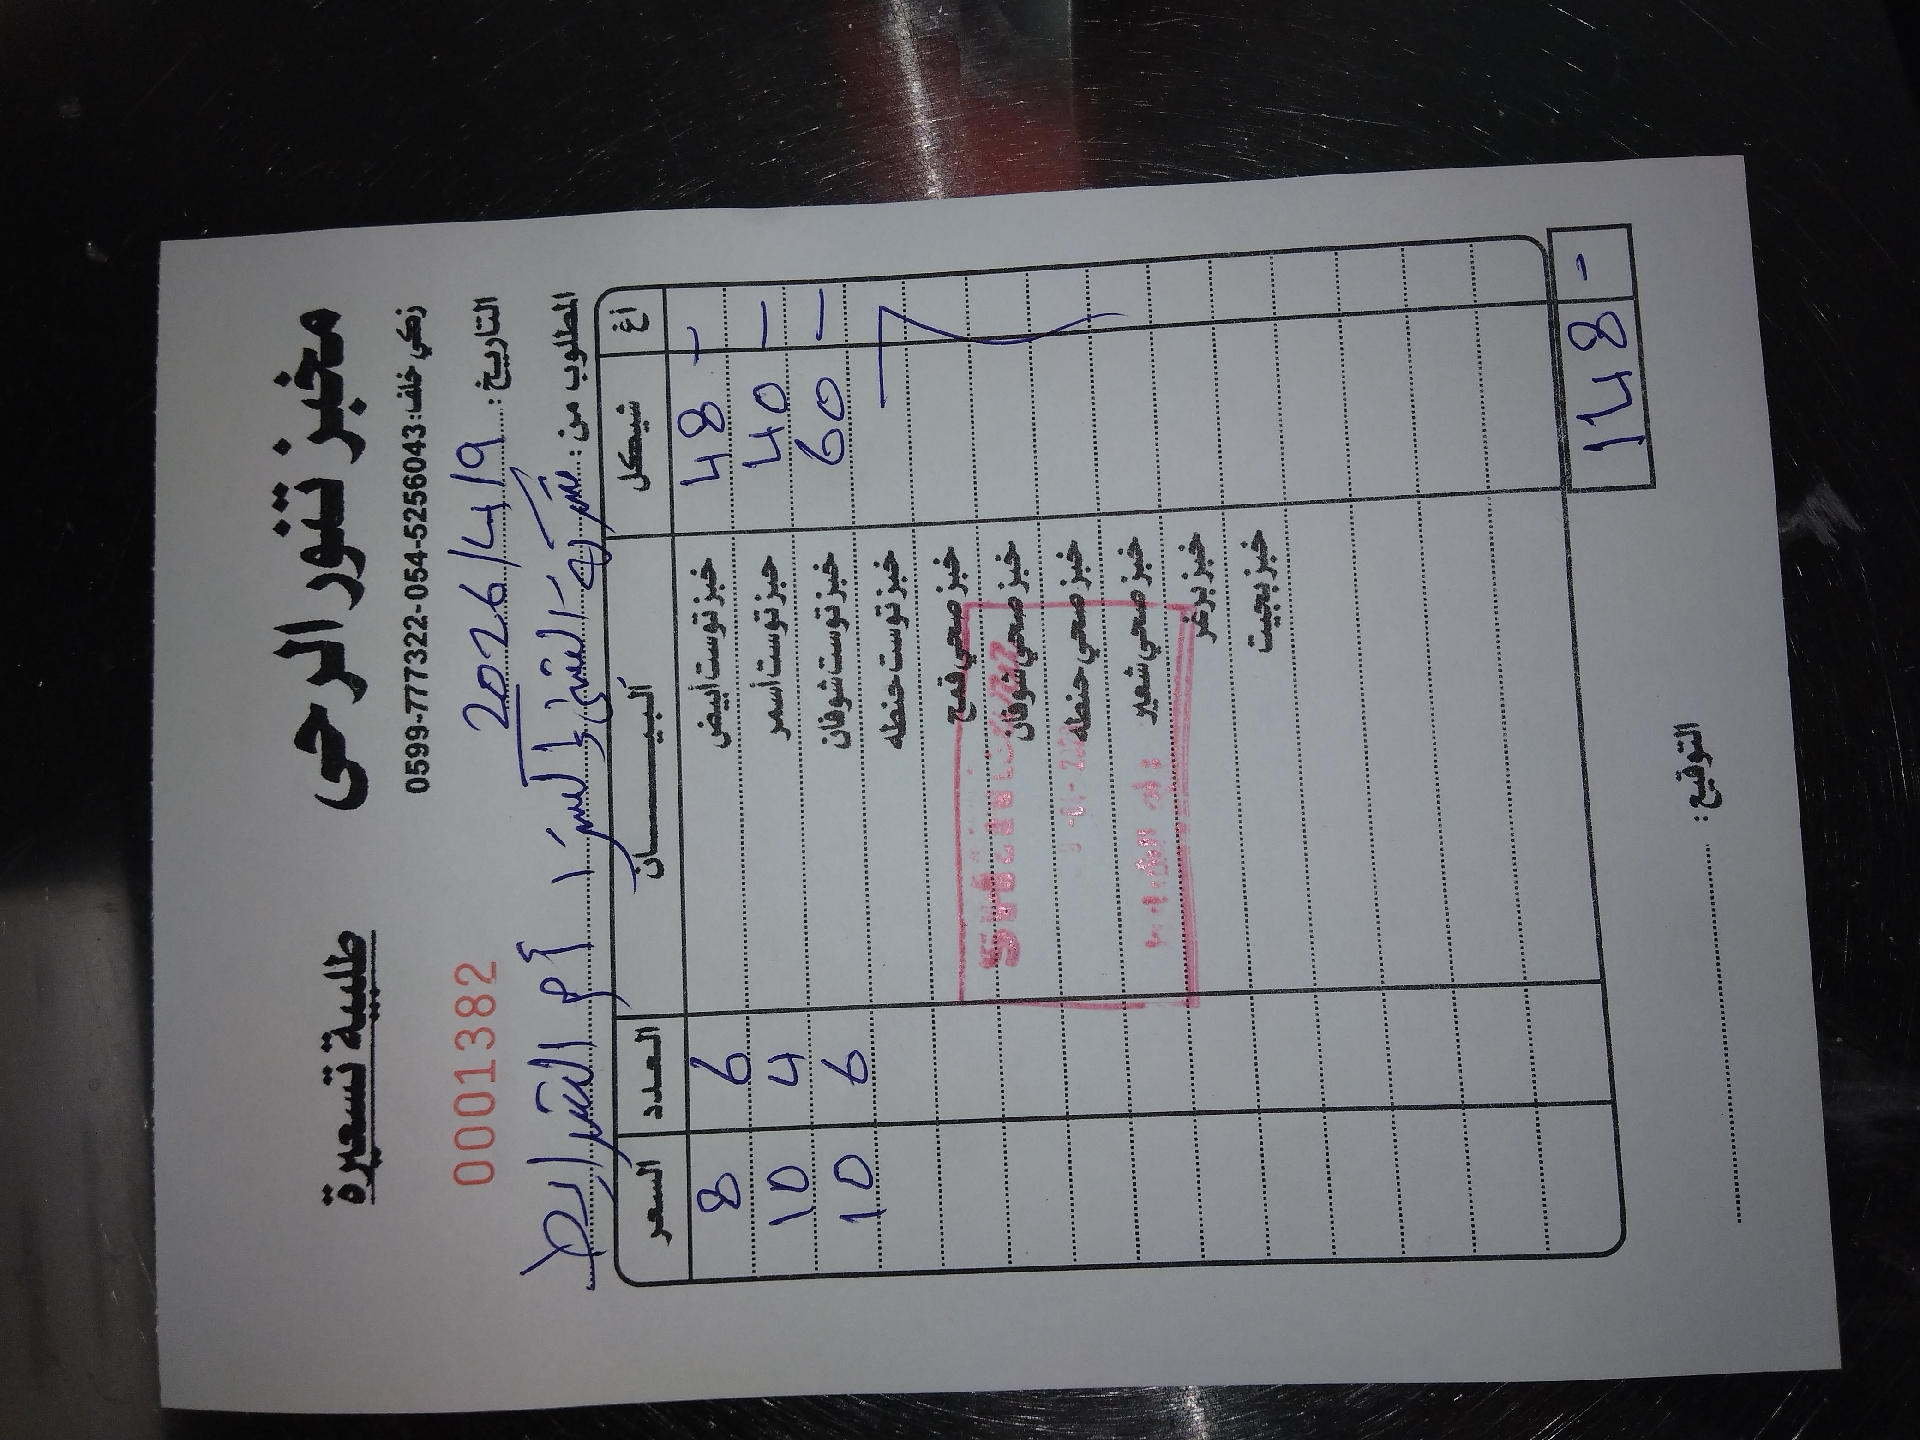 مخبز تنور الرحى
طلبية تسعيرة
زهي خلف: 0599-777322-054-5256043
التاريخ: 2026/4/9
0001382
المطلوب من: شركة الشني إكسبرس / أم الشرايط
السعر العدد البيــــــان شيكل اغ
8 6 خبز توست أبيض 48 -
10 4 خبز توست أسمر 40 -
10 6 خبز توست شوفان 60 -
خبز توست حنطه
خبز صحي قمح
خبز صحي شوفان
خبز صحي حنطه
خبز صحي شعير
خبز برغر
خبز بجيت
148 -
التوقيع: